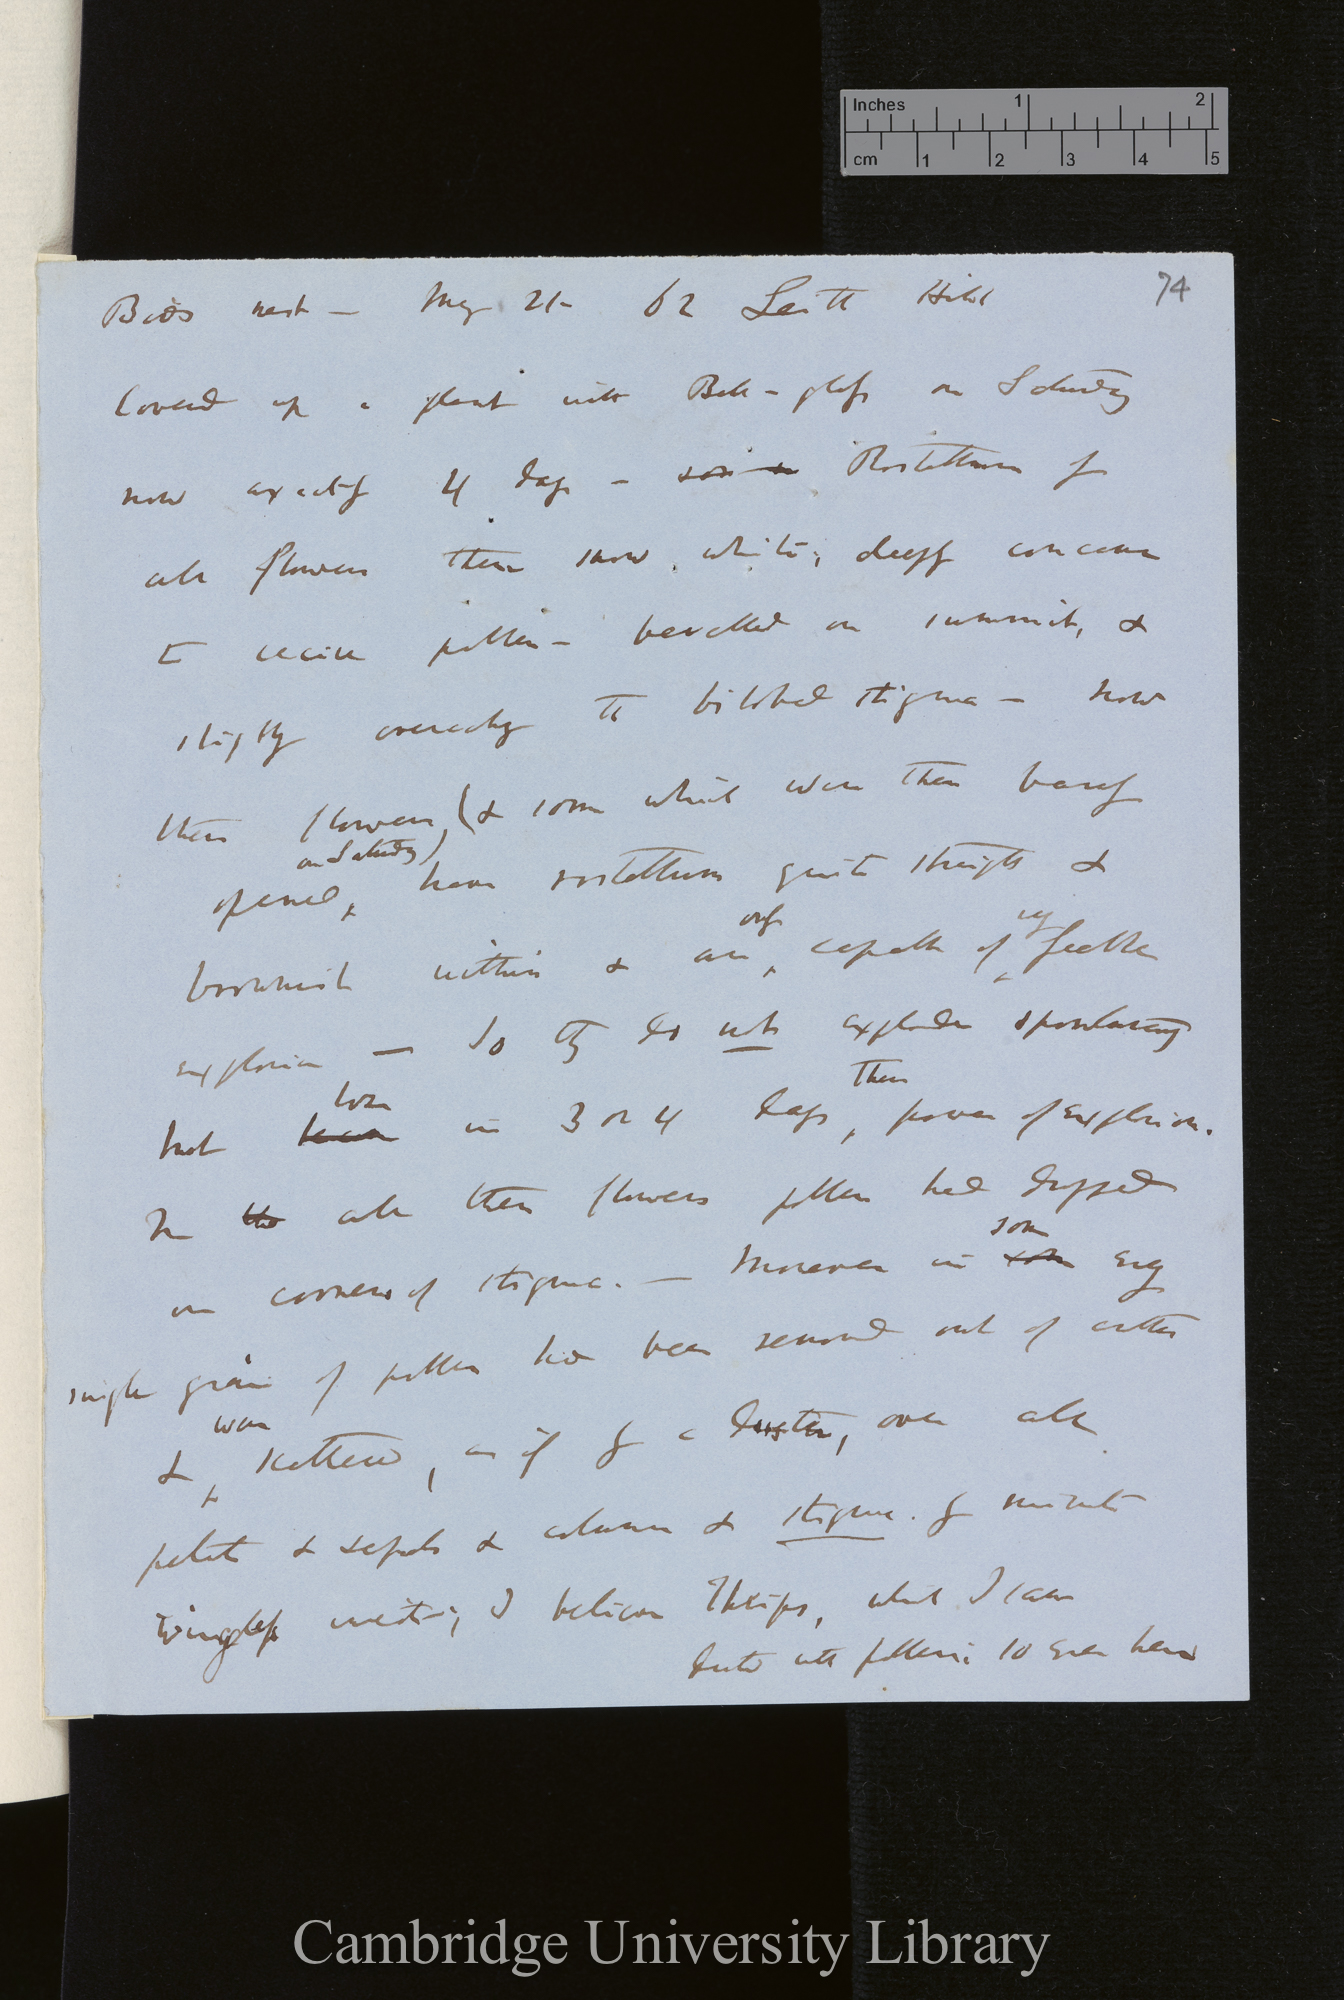 Inches 1 2
cm 1 2 3 4 5
74
Birds nest — May 21 - 62 Leith Hill
Covered up a plant with Bell-glass on Saturday
now exactly 4 days — Rostellum of
all flowers then snow white; deeply concave
to receive pollen — bevelled on summit, &
slightly overarching the bilobed stigma — now
these flowers, (& some which were then barely
opened, on Saturday) have rostellum quite straight &
brownish within & are only capable of very feeble
explosion — So they do not explode spontaneously
but lose in 3 or 4 days, their power of explosion.
In the all these flowers pollen had dropped
on corners of stigma. — Moreover in some every
single grain of pollen had been removed out of anther
& were scattered, as if by a duster, over all
petals & sepals & column & stigma. by minute
wingless insects; I believe Thrips, which I saw
dusted with pollen: so even here
Cambridge University Library